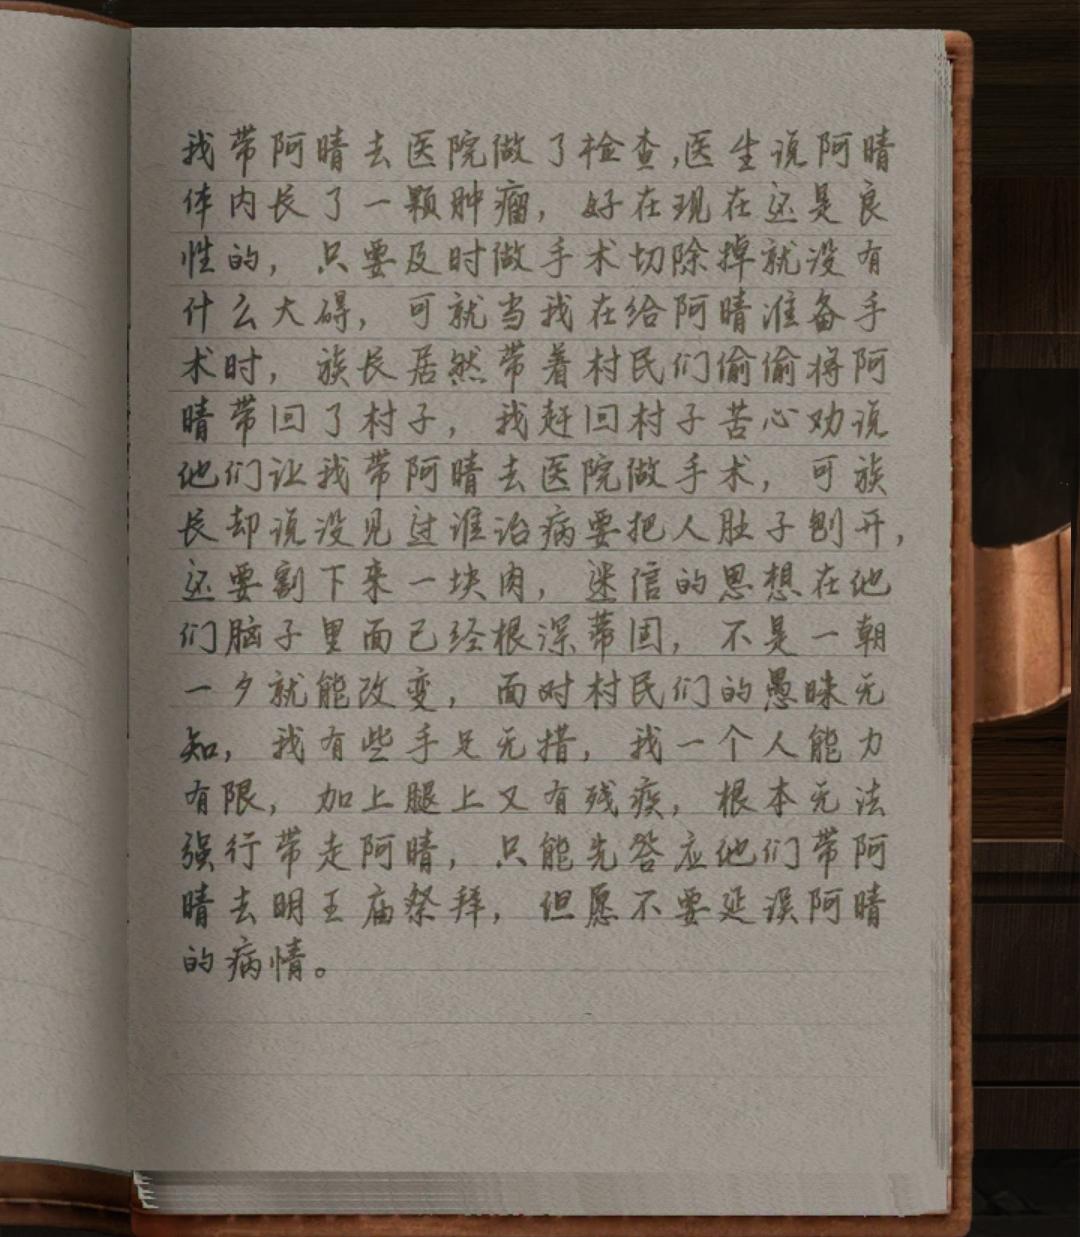 我带阿晴去医院做了检查,医生说阿晴
体内长了一颗肿瘤，好在现在还是良
性的，只要及时做手术切除掉就没有
什么大碍，可就当我在给阿晴准备手
术时，族长居然带着村民们偷偷将阿
晴带回了村子，我赶回村子苦心劝说
他们让我带阿晴去医院做手术，可族
长却说没见过谁治病要把人肚子刨开，
还要割下来一块肉，迷信的思想在他
们脑子里面已经根深蒂固，不是一朝
一夕就能改变，面对村民们的愚昧无
知，我有些手足无措，我一个人能力
有限，加上腿上又有残疾，根本无法
强行带走阿晴，只能先答应他们带阿
晴去明王庙祭拜，但愿不要延误阿晴
的病情。